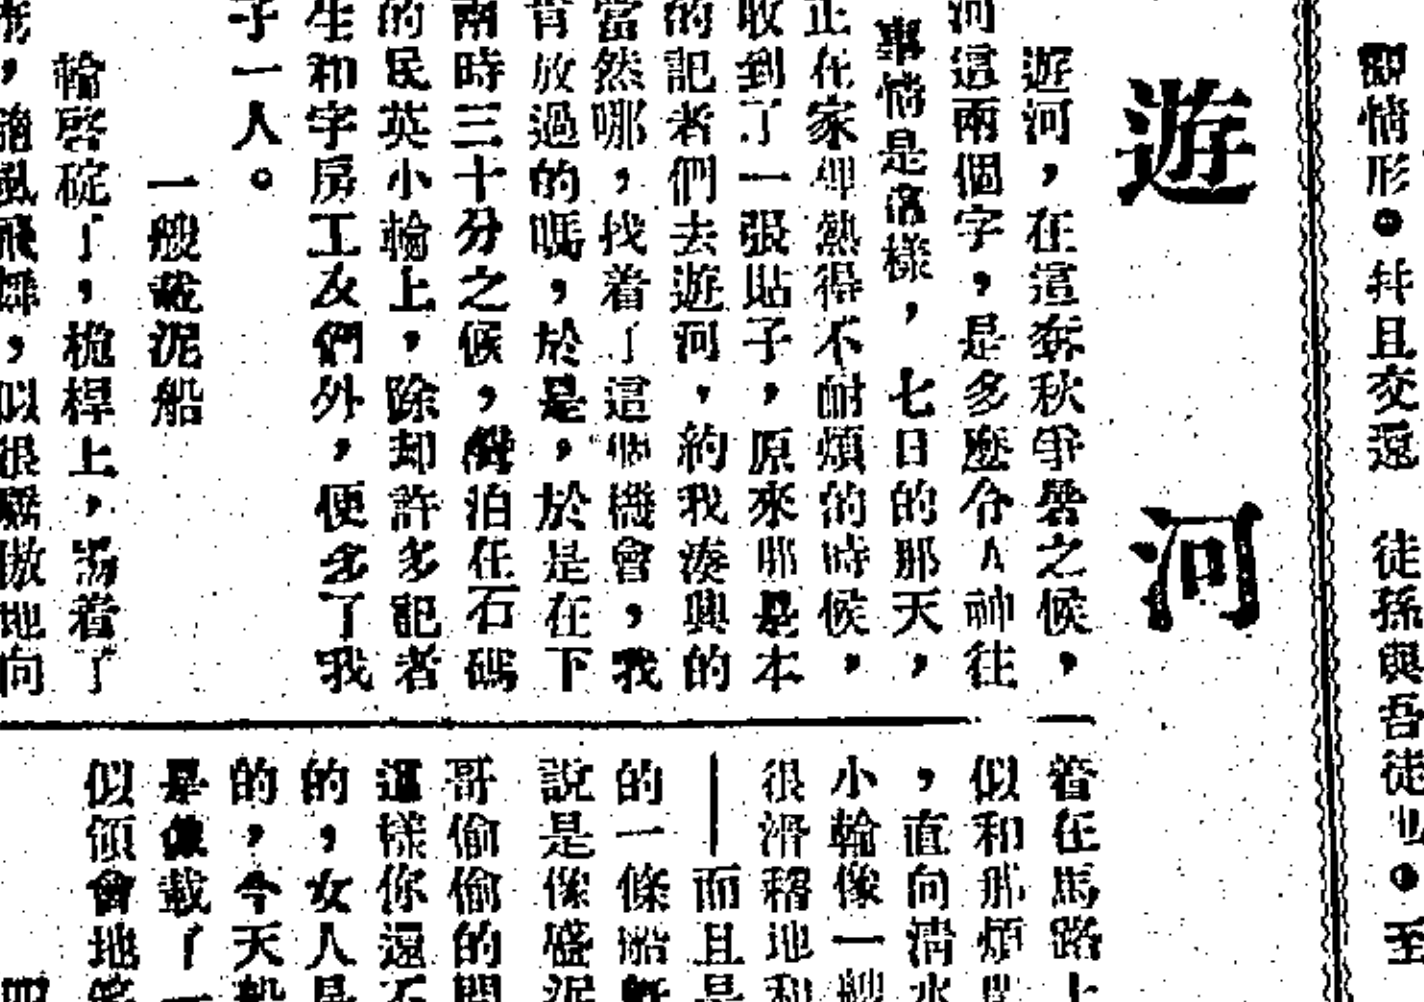 情形。并且交還　徒孫與吾徒　至
遊河
遊河，在這秋爭暑之候，
河這兩個字，是多麼令人神往
事情是這樣，七日的那天，
正在家裡熱得不耐煩的時候，
收到了一張貼子，原來那是本
的記者們去遊河，約我湊興的
當然哪，找着了這個機會，我
肯放過的嗎，於是，於是在下
兩時三十分之候，泊在石碼
的民英小輪上，除却許多記者
生和字房工友們外，便多了我
子一人。
一艘載泥船
輪啓碇了，桅桿上，着了
，風飛舞，似很驕傲地向
着在馬路上
似和那煩
，直向淸水
小輪像一艘
很滑稽地和
——而且是
的一條船
說是像盛泥
哥偷偷的問
這樣你還不
的，女人是
的，今天
是像載了一
似領會地